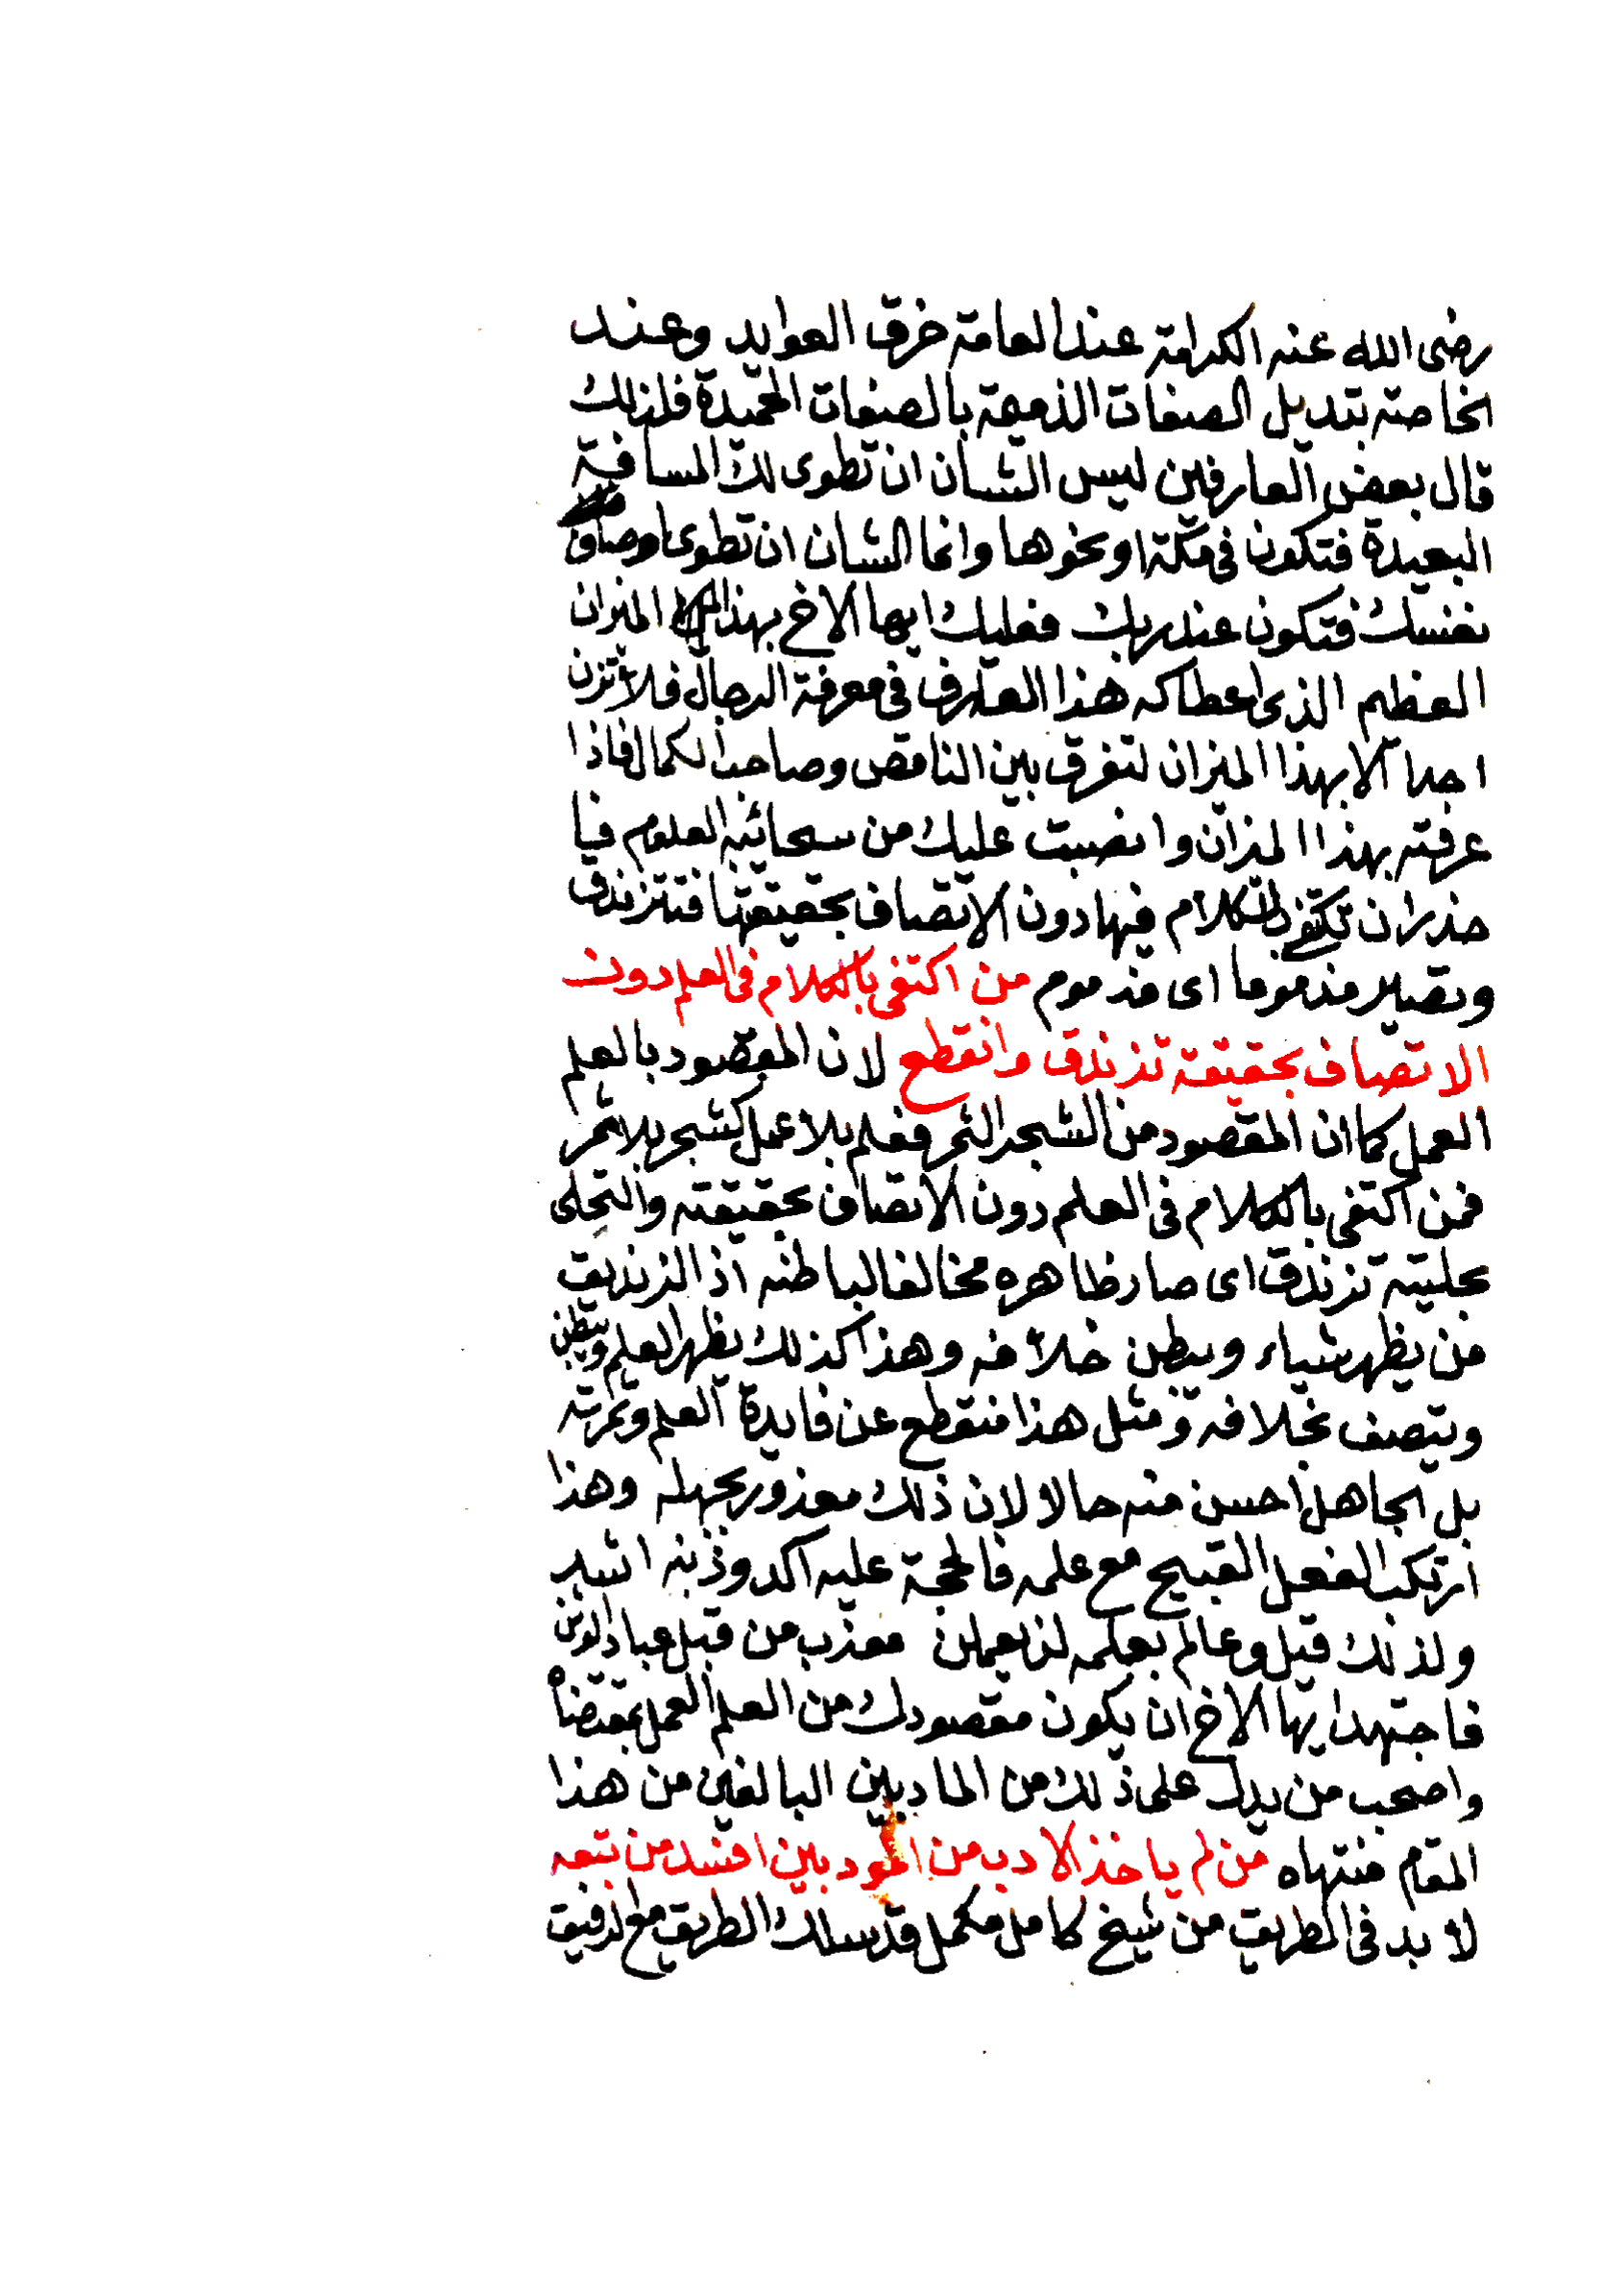 رضى الله عنه الكرامة عند العامة خرق العوايد وعند
الخاصة بتديل الصفات الذميمة بالصفات الحميدة فلذلك
قال بعض العارفين ليس الشان ان تطوى لك المسافة
البعيدة فتكون فى مكة او نحوها وانما الشان ان تطوى اوصاف
نفسك فتكون عند ربك فعليك ايها الاخ بهذا الميزان
العظيم الذى اعطاكه هذا العارف فى معرفة الرجال فلا تزن
احدا الا بهذا الميزان لتفرق بين الناقص وصاحب الكمال فاذا
عرفته بهذا الميزان وانصبت عليك من سحائبه العلوم فيا
حذر ان تكتفى بالكلام فيها دون الاتصاف بحقيقتها فتتزندق
وتصير مذموما اى مذموم من اكتفى بالكلام فى العلم دون
الاتصاف بحقيقته تزندق وانقطع لان المقصود بالعلم
العمل كما ان المقصود من الشجر الثمر فعلم بلا عمل كشجر بلا ثمر
فمن اكتفى بالكلام فى العلم دون الاتصاف بحقيقته والتحلى
بحليته تزندق اى صار ظاهره مخالفا لباطنه اذ الزنديق
من يظهر شياء ويبطن خلافه وهذا كذلك يظهر العلم ويبطن
ويتصف بخلافه ومثل هذا منقطع عن فايدة العلم وثمرته
بل الجاهل احسن منه حالا لان ذلك معذور بجهله وهذا
ارتكب الفعل القبيح مع علمه فالحجة عليه اكد وذنبه اشد
ولذلك قيل وعالم بعلمه لن يعملن معذب من قبل عباد الوثن
فاجتهد ايها الاخ ان يكون مقصودك من العلم العمل بمقتضاه
واصحب من يدلك على ذلك من المادبين البالغين من هذا
المقام منتهاه من لم ياخذ الادب من المودبين افسد من تبعه
لا بد فى الطريق من شيخ كامل مكمل قد سلك الطريق مع الرفيق